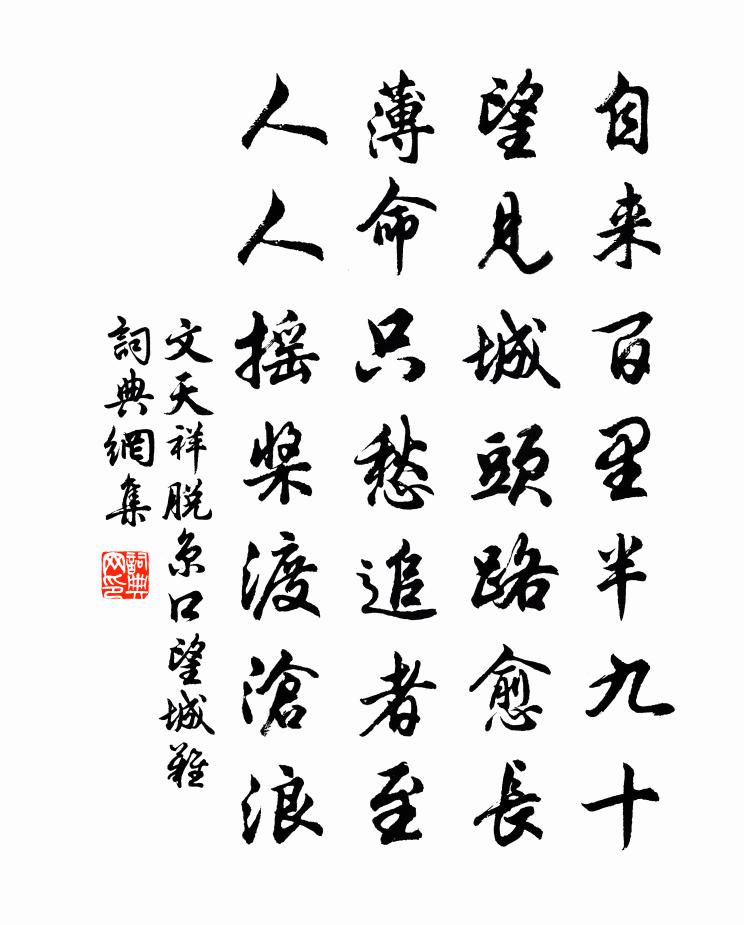 自来百里半九十
望見城頭路愈長
薄命只愁追者至
人人摇槳渡滄浪
文天祥脱京口望城難
詞典網集
詞典网印